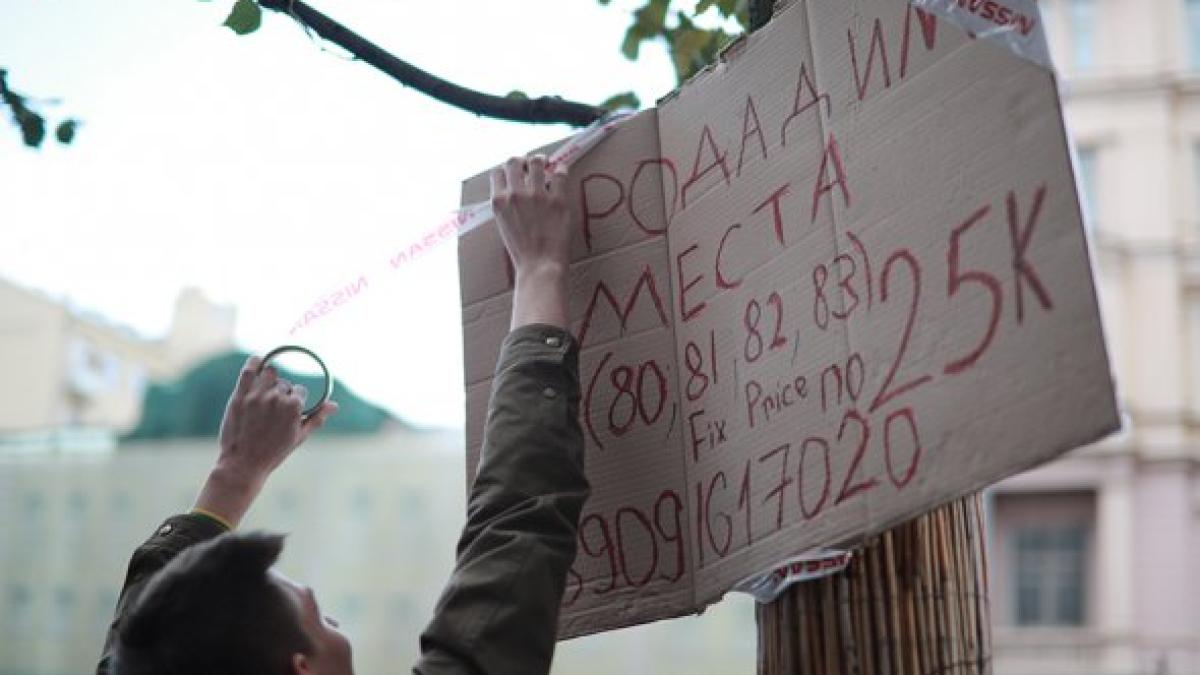 РОДАДИМ
МЕСТА
(80, 81, 82, 83)
Fix Price по 25К
89091617020
NISSAN
NISSAN
NISSAN
NISSAN